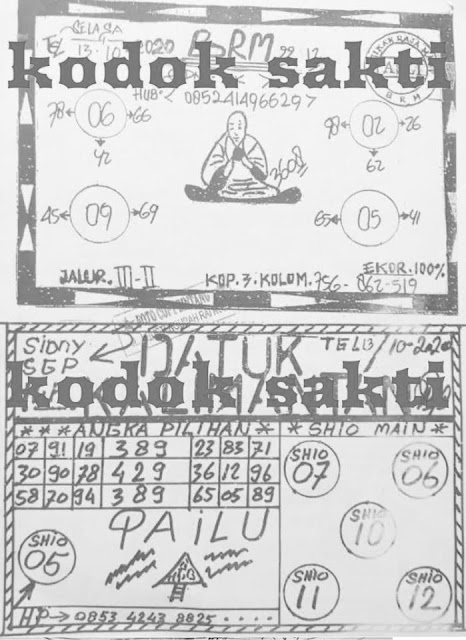 SELASA
TGL 13-10-2020 BORM 99 12
kodok sakti
HUB < 085241496629 >
78 06 66
42
98 02 26
62
45 09 69
65 05 41
JALUR. III-II
KOP. 3. KOLOM. 756-
862-519
EKOR. 100%
Sidny DATUK TEL 13/10-2020
SGP
kodok sakti
***ANGKA PILIHAN** * SHIO MAIN *
07 91 19 389 23 83 71
30 90 78 429 36 12 96
58 70 94 389 65 05 89
PAiLU
SHIO 05
SHIO 07
SHIO 06
SHIO 10
SHIO 11
SHIO 12
HP → 0853 4243 8825 ....